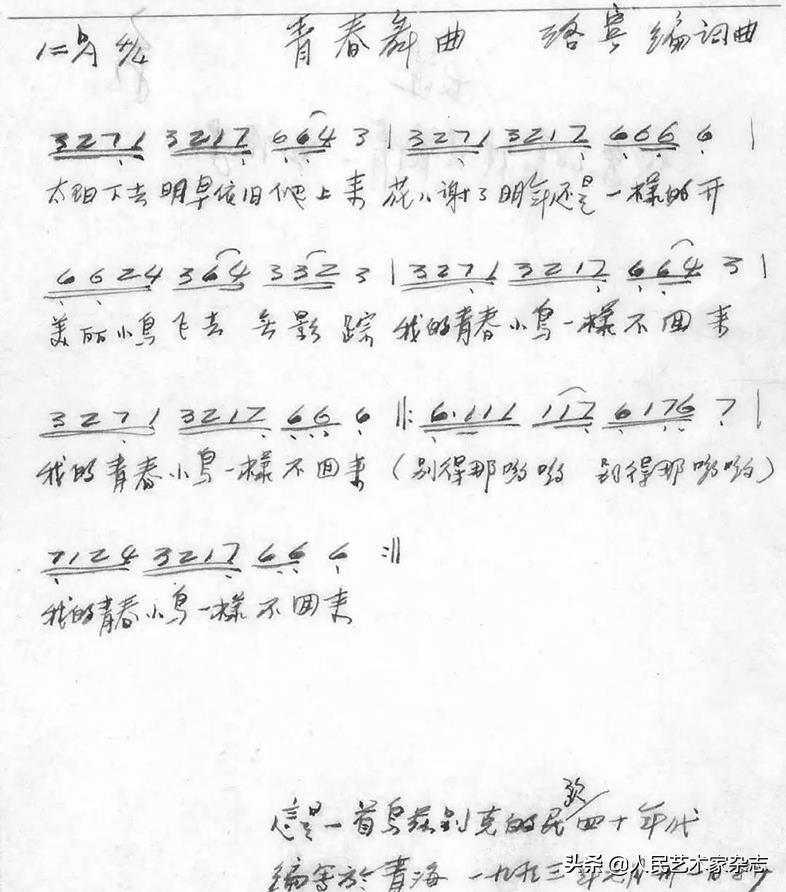 1=♭A 4/4 青春舞曲 洛宾编词曲
3271 3217 664 3 | 3271 3217 666 6 |
太阳下去明早依旧爬上来 花儿谢了明年还是一样的开
6624 364 332 3 | 3271 3217 664 3 |
美丽小鸟飞去无影踪 我的青春小鸟一样不回来
3271 3217 666 6 ‖: 6·111 117 6176 7 |
我的青春小鸟一样不回来 (别得那哟哟 别得那哟哟)
7124 3217 66 6 :‖
我的青春小鸟一样不回来
這是一首烏兹别克的民歌 四十年代
编写於青海 一九九三年
头条 @人民艺术家杂志